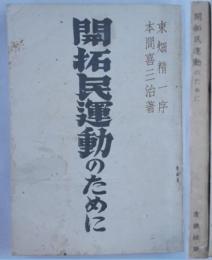 東畑精一序
本間喜三治著
開拓民運動のために
開拓民運動のために